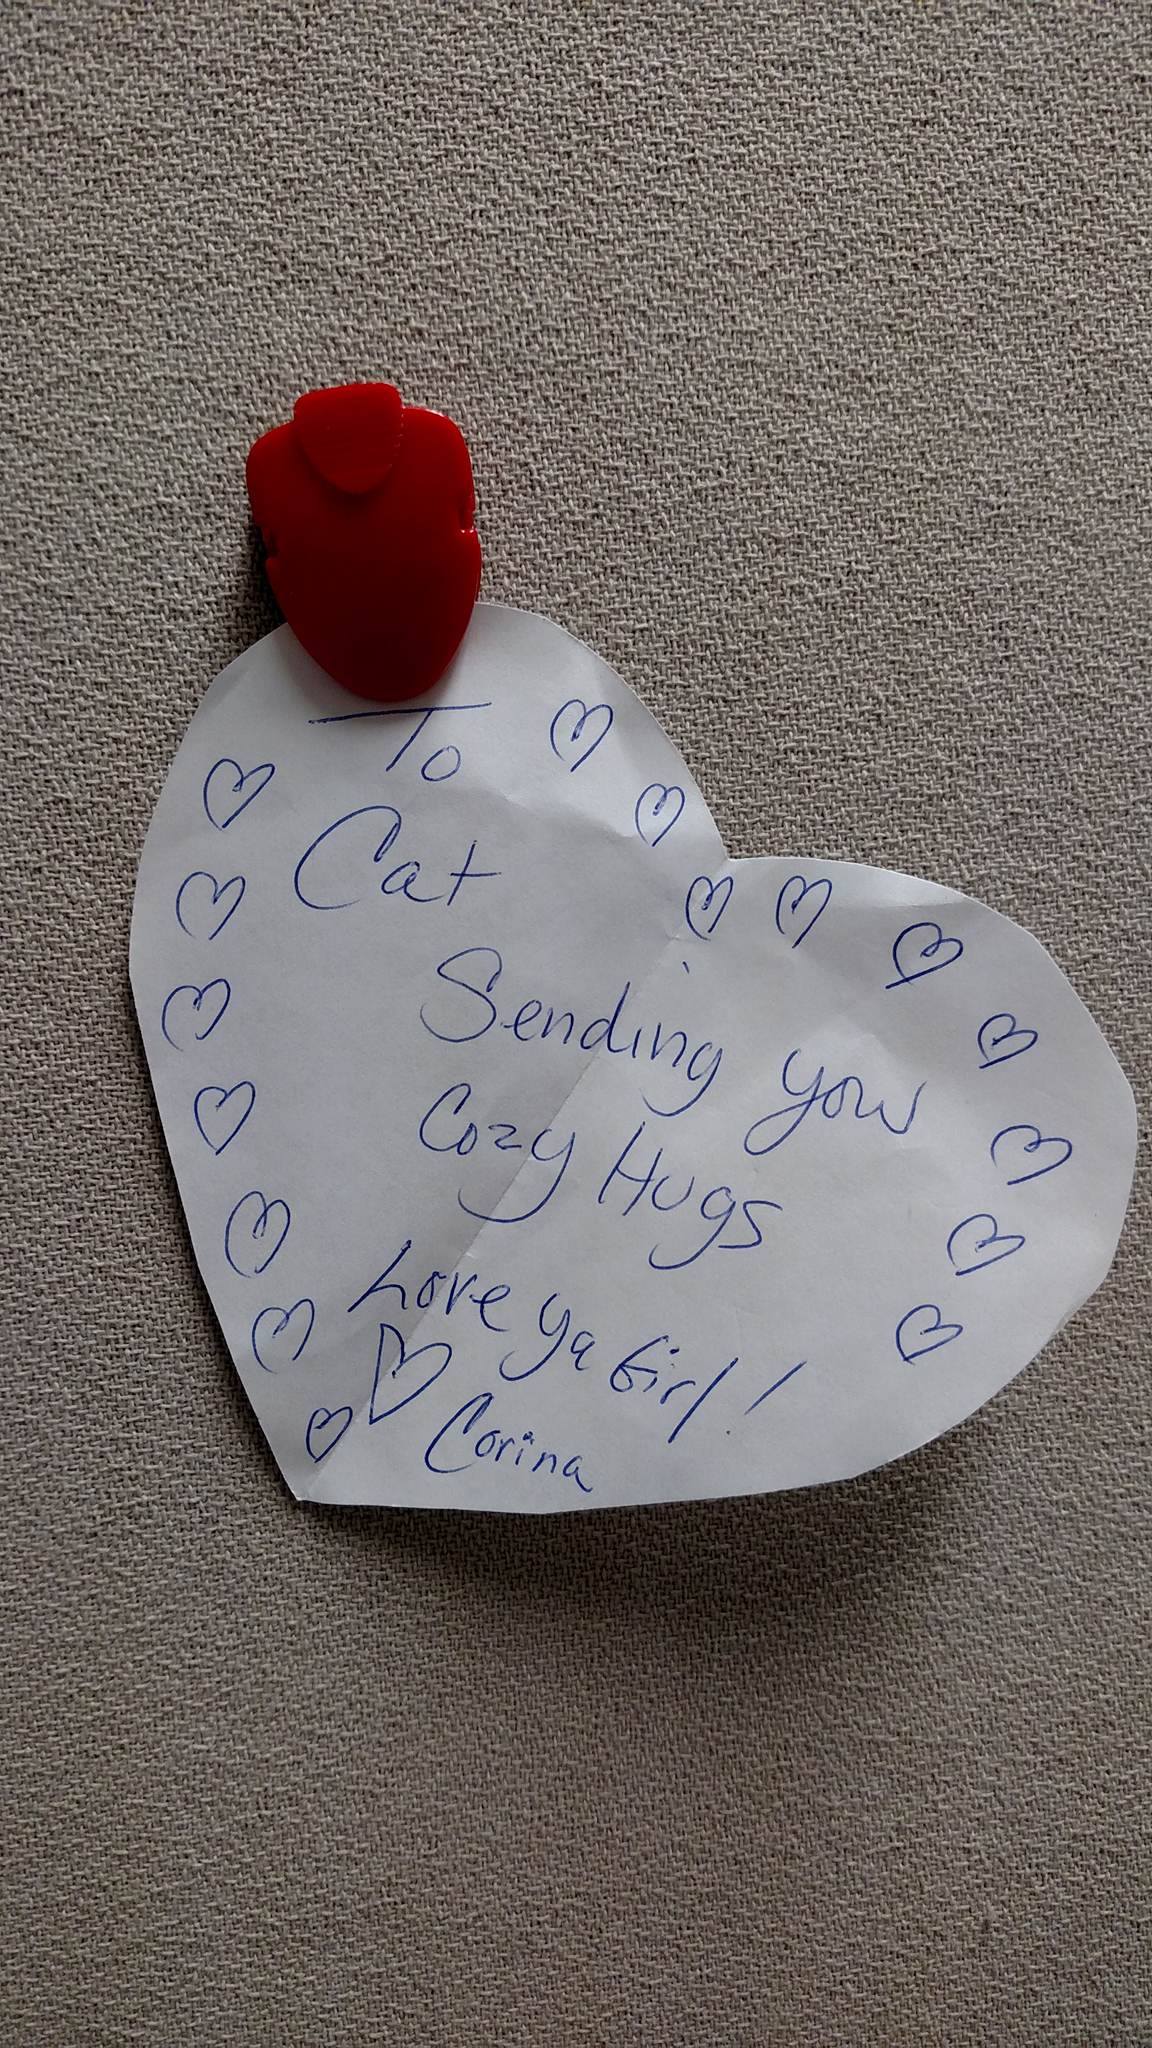 To
Cat
Sending you
Cozy Hugs
Love ya Girl!
Corina